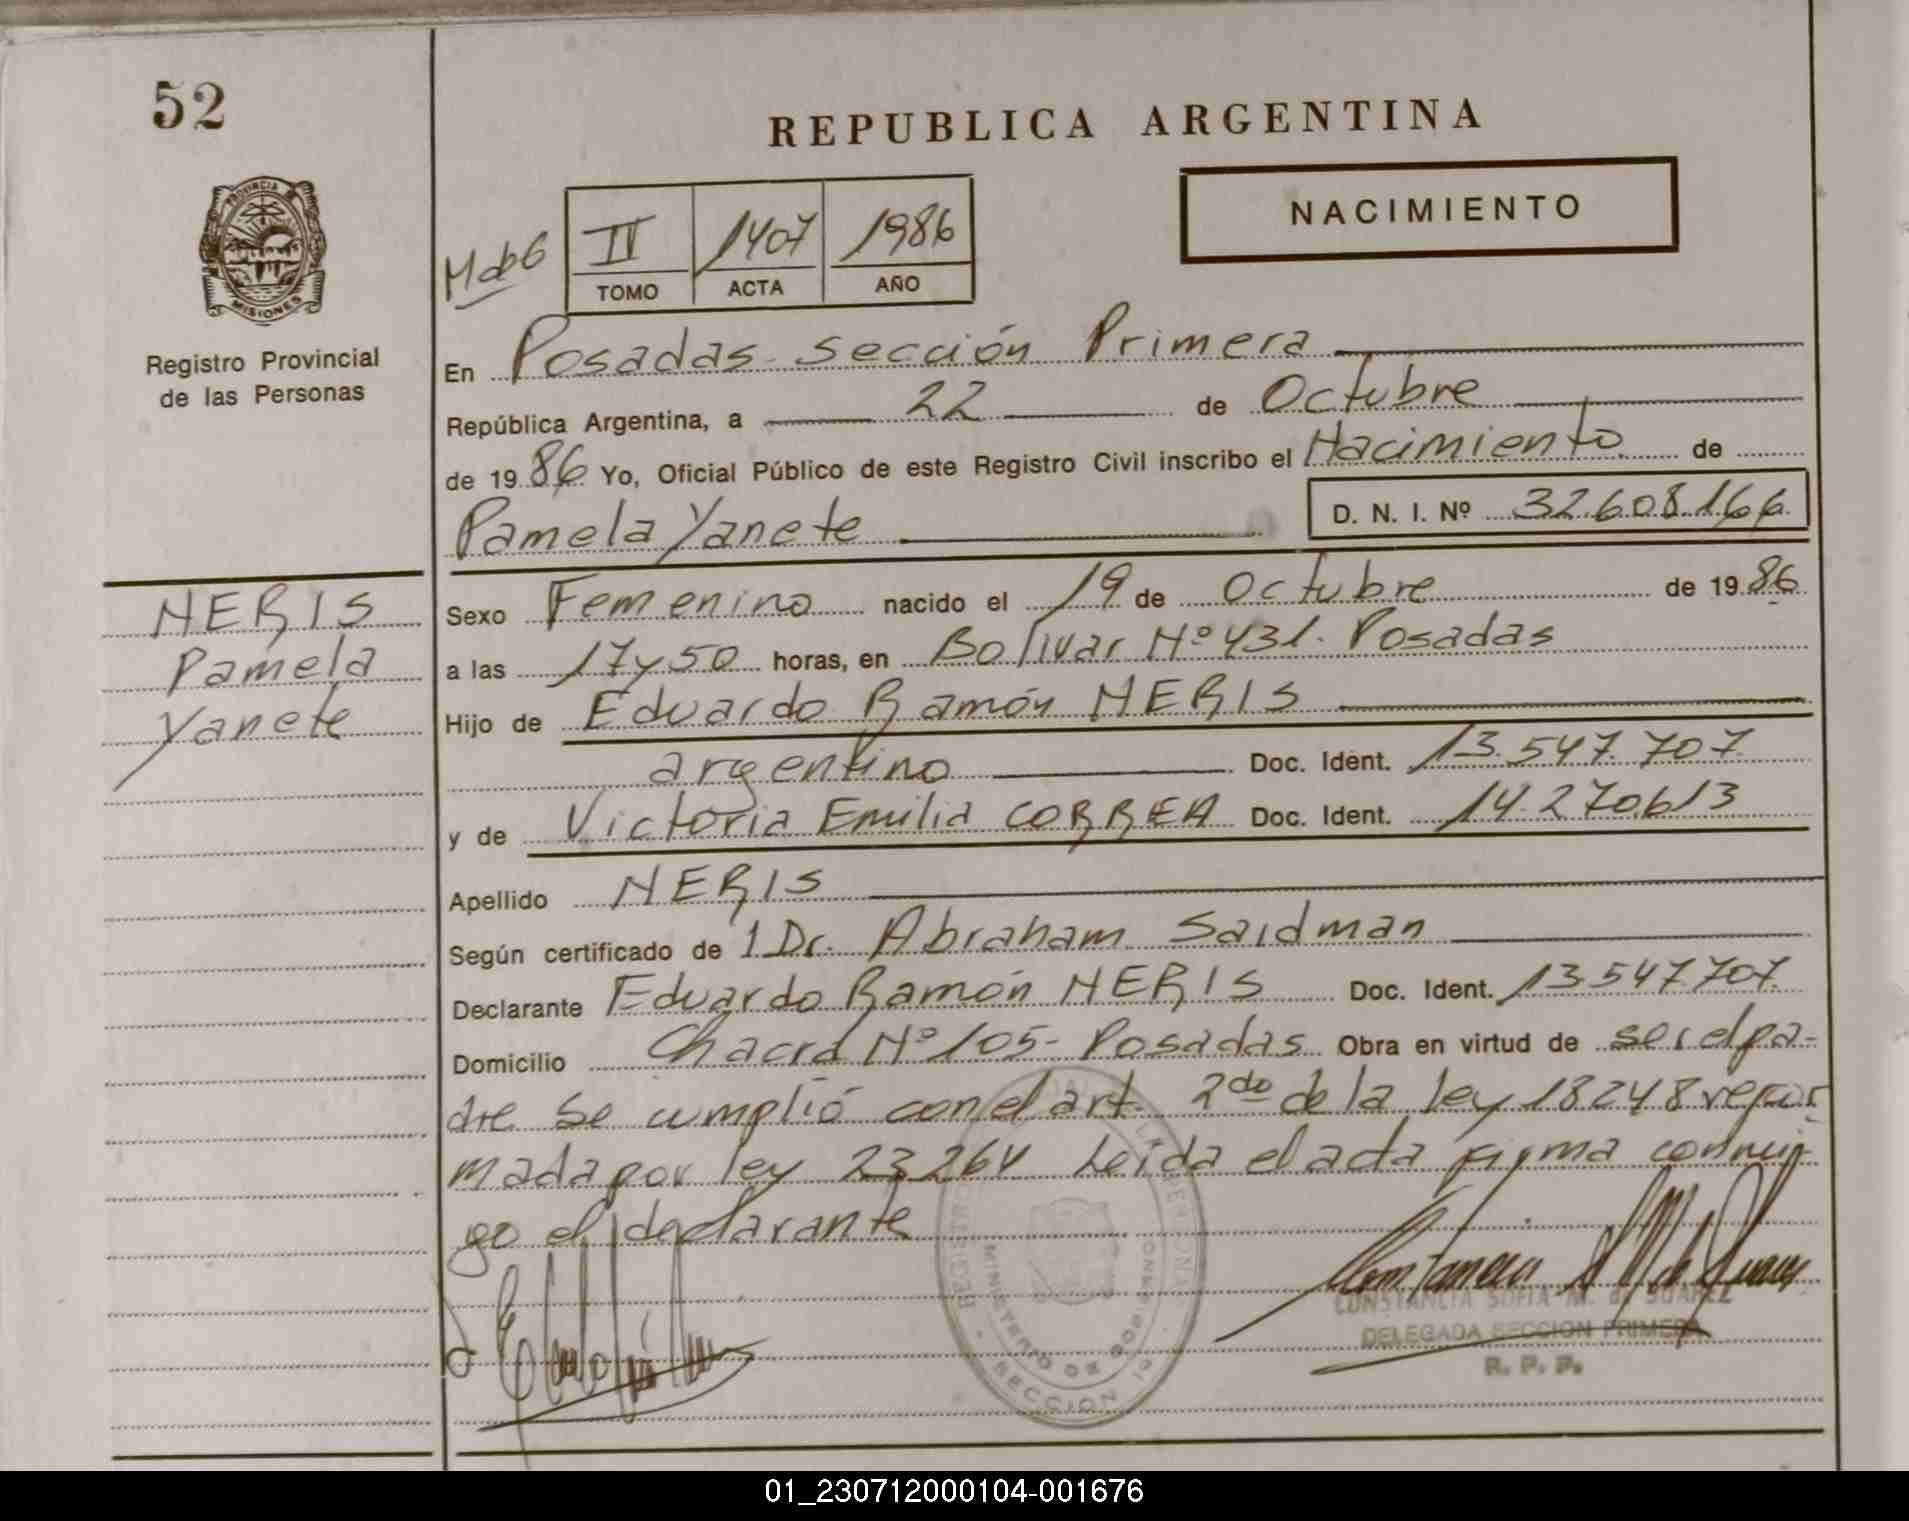 52
REPUBLICA ARGENTINA
NACIMIENTO
PROVINCIA DE
MISIONES
Registro Provincial
de las Personas
M de G
II 1407 1986
TOMO ACTA AÑO
En Posadas Sección Primera
República Argentina, a 22 de Octubre
de 1986 Yo, Oficial Público de este Registro Civil inscribo el Nacimiento de
Pamela Yanete D. N. I. Nº 32.608.166
NERIS
Pamela
Yanete
Sexo Femenino nacido el 19 de Octubre de 1986
a las 17 y 50 horas, en Bolivar Nº 431. Posadas
Hijo de Eduardo Ramón NERIS
argentino Doc. Ident. 13.547.707
y de Victoria Emilia CORREA Doc. Ident. 14.270.613
Apellido NERIS
Según certificado de 1 Dr. Abraham Saidman
Declarante Eduardo Ramón NERIS Doc. Ident. 13.547.707.
Domicilio Chacra Nº 105- Posadas Obra en virtud de ser el pa-
dre Se cumplió con el art. 2do de la ley 18248 refor
mada por ley 23264 Leída el acta firma conmi-
go el declarante
CONSTANCIA SOFIA M. de SUAREZ
DELEGADA SECCION PRIMERA
R. P. P.
MINISTERIO DE GOBIERNO
SECCION 1a
01_230712000104-001676